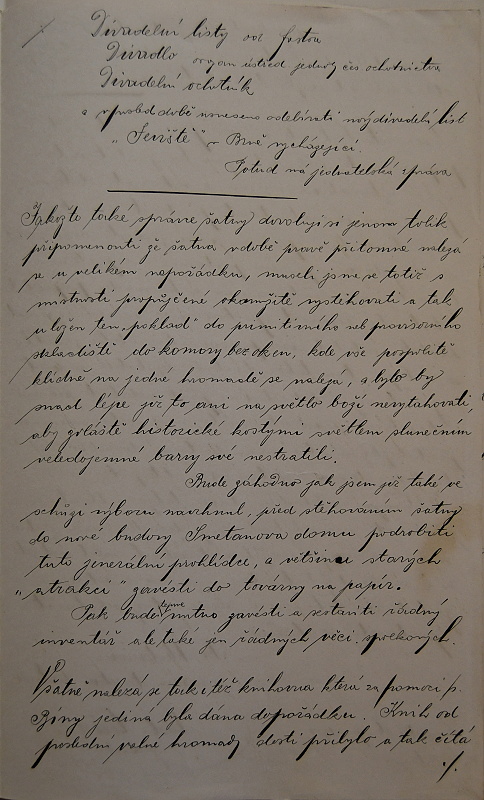 Divadelní listy od
Divadlo orgán ústřed. jednoty čes. ochotnictva
Divadelní ochotník
a v posled. době usneseno odebírati nový divadelní list
„Jeviště" v Brně vycházející.
Potud má jednatelská zpráva
Jakožto také správce šatny dovoluji si jenom tolik
připomenouti že šatna v době právě přítomné nalezá
se u velikém nepořádku, museli jsme se totiž s
místnosti propůjčené okamžitě vystěhovati a tak
uložen ten „poklad" do primitivního neb provisorního
skladiště do komory bez oken, kde vše pospolitě
klidně na jedné hromadě se nalezá, a bylo by
snad lépe již to ani na světlo boží nevytahovati,
aby zvláště historické kostýmy světlem slunečním
veledojemné barvy své nestratili.
Bude záhodno jak jsem již také ve
schůzi výboru navrhnul, před stěhováním šatny
do nové budovy Smetanova domu podrobiti
tuto jenerální prohlídce, a většinu starých
„atrakcí" zavésti do továrny na papír.
Pak bude nutno zavésti a sestaviti řádný
inventář ale také jen řádných věcí spolkových.
V šatně nalezá se tak též knihovna která za pomoci p.
Bíny jediná byla dána do pořádku. Knih od
poslední valné hromady dosti přibylo a tak čítá
./.